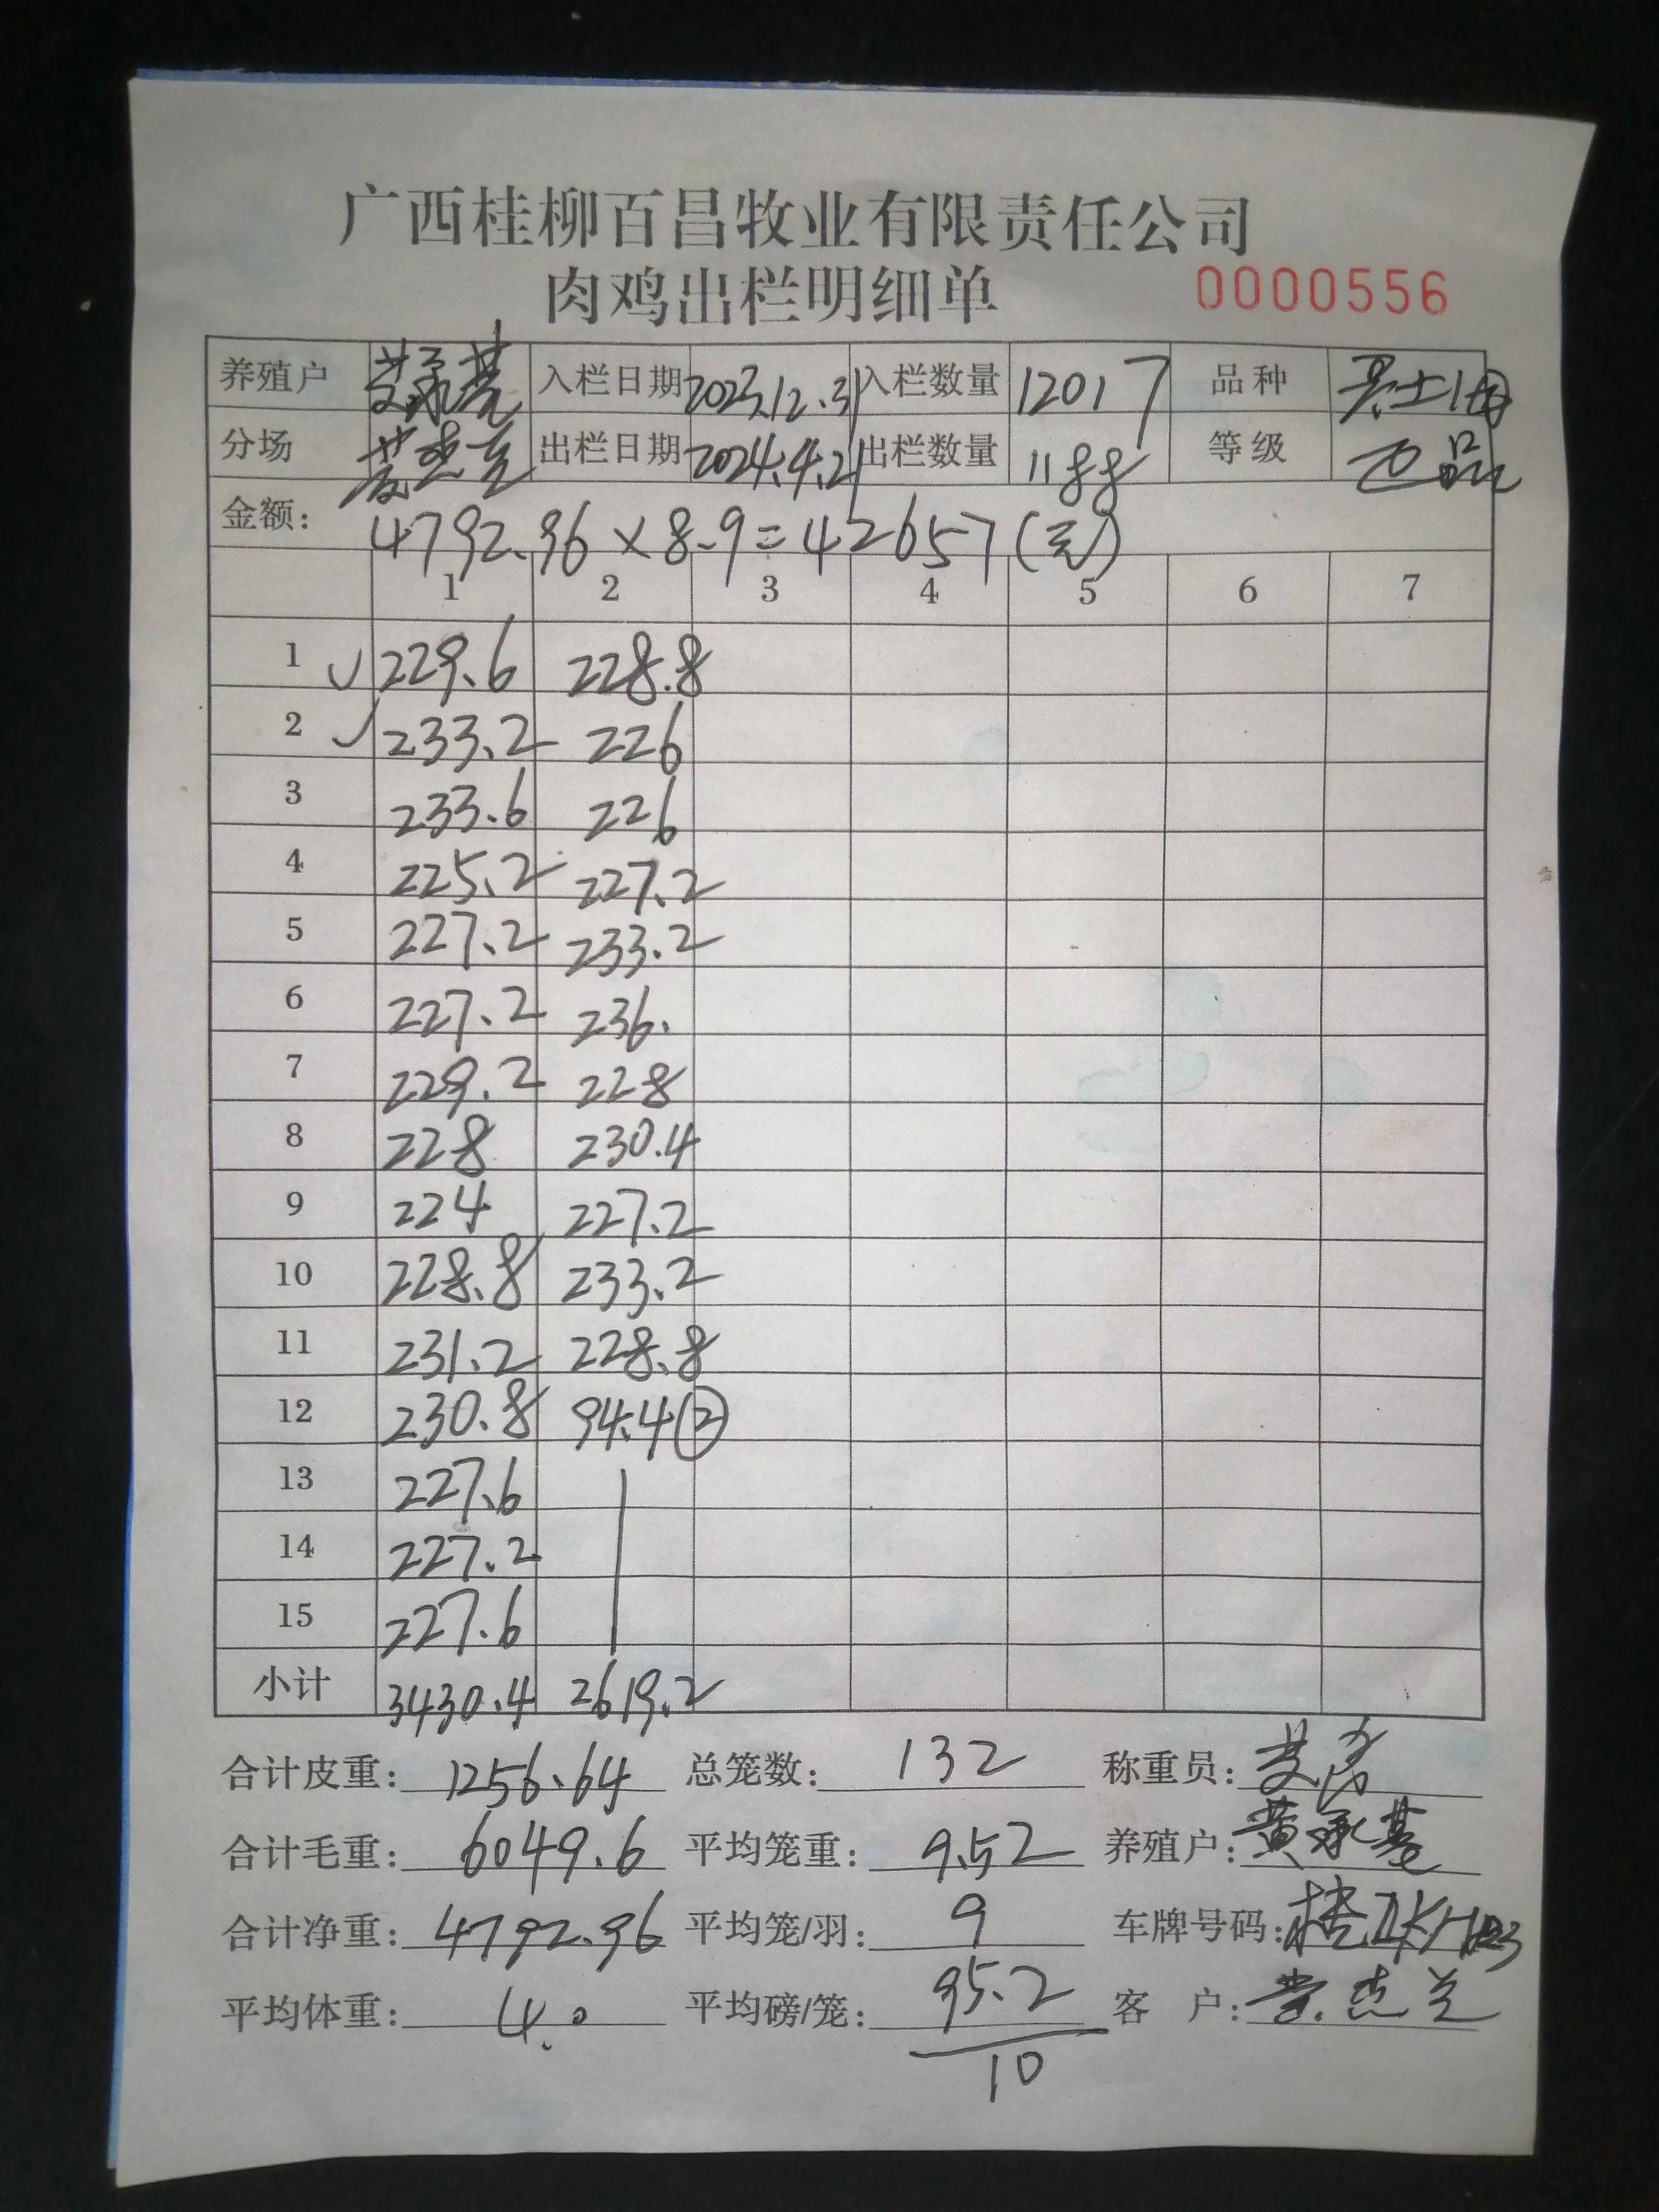 广西桂柳百昌牧业有限责任公司
肉鸡出栏明细单 0000556
养殖户 黄承基 入栏日期 2023.12.31 入栏数量 12017 品种
分场 出栏日期 2024.4.21 出栏数量 1188 等级 正品
金额: 4792.96×8.9=42657(元)
1 2 3 4 5 6 7
1 229.6 228.8
2 233.2 226
3 233.6 226
4 225.2 227.2
5 227.2 233.2
6 227.2 236.
7 229.2 228
8 228 230.4
9 224 227.2
10 228.8 233.2
11 231.2 228.8
12 230.8 94.4②
13 227.6
14 227.2
15 227.6
小计 3430.4 2619.2
合计皮重: 1256.64 总笼数: 132 称重员:
合计毛重: 6049.6 平均笼重: 9.52 养殖户: 黄承基
合计净重: 4792.96 平均笼/羽: 9 车牌号码:
平均体重: 4.0 平均磅/笼: 95.2 客 户:
10